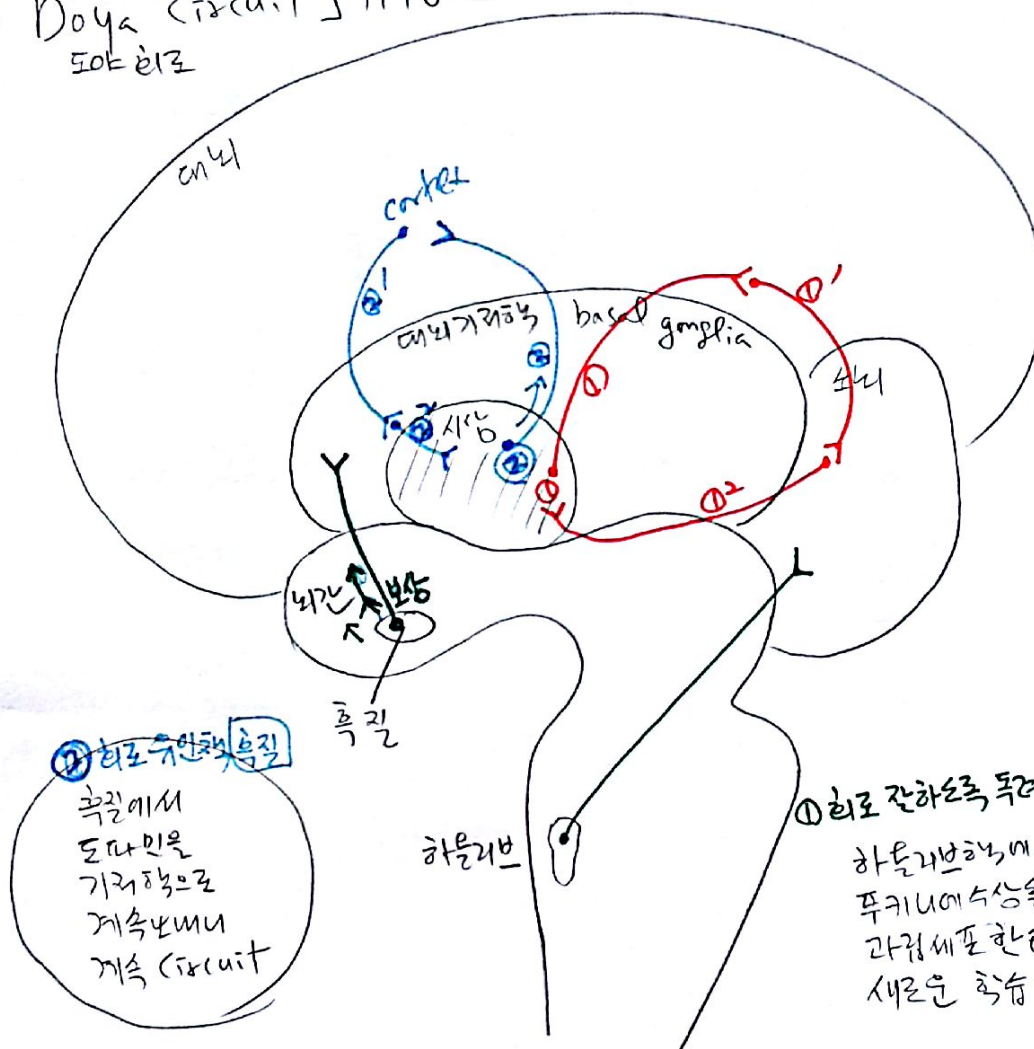 Doya Circuit
도야 회로
대뇌
cortex
②'
①'
대뇌기저핵
basal
ganglia
②
①
소뇌
②
시상
②
①
①²
뇌간
보상
흑질
② 회로 유인책 흑질
흑질에서
도파민을
기저핵으로
계속 보내니
계속 Circuit
하올리브
① 회로 잘하도록 독려
하올리브핵에
푸키니에 수상
과립세포 한
새로운 학습